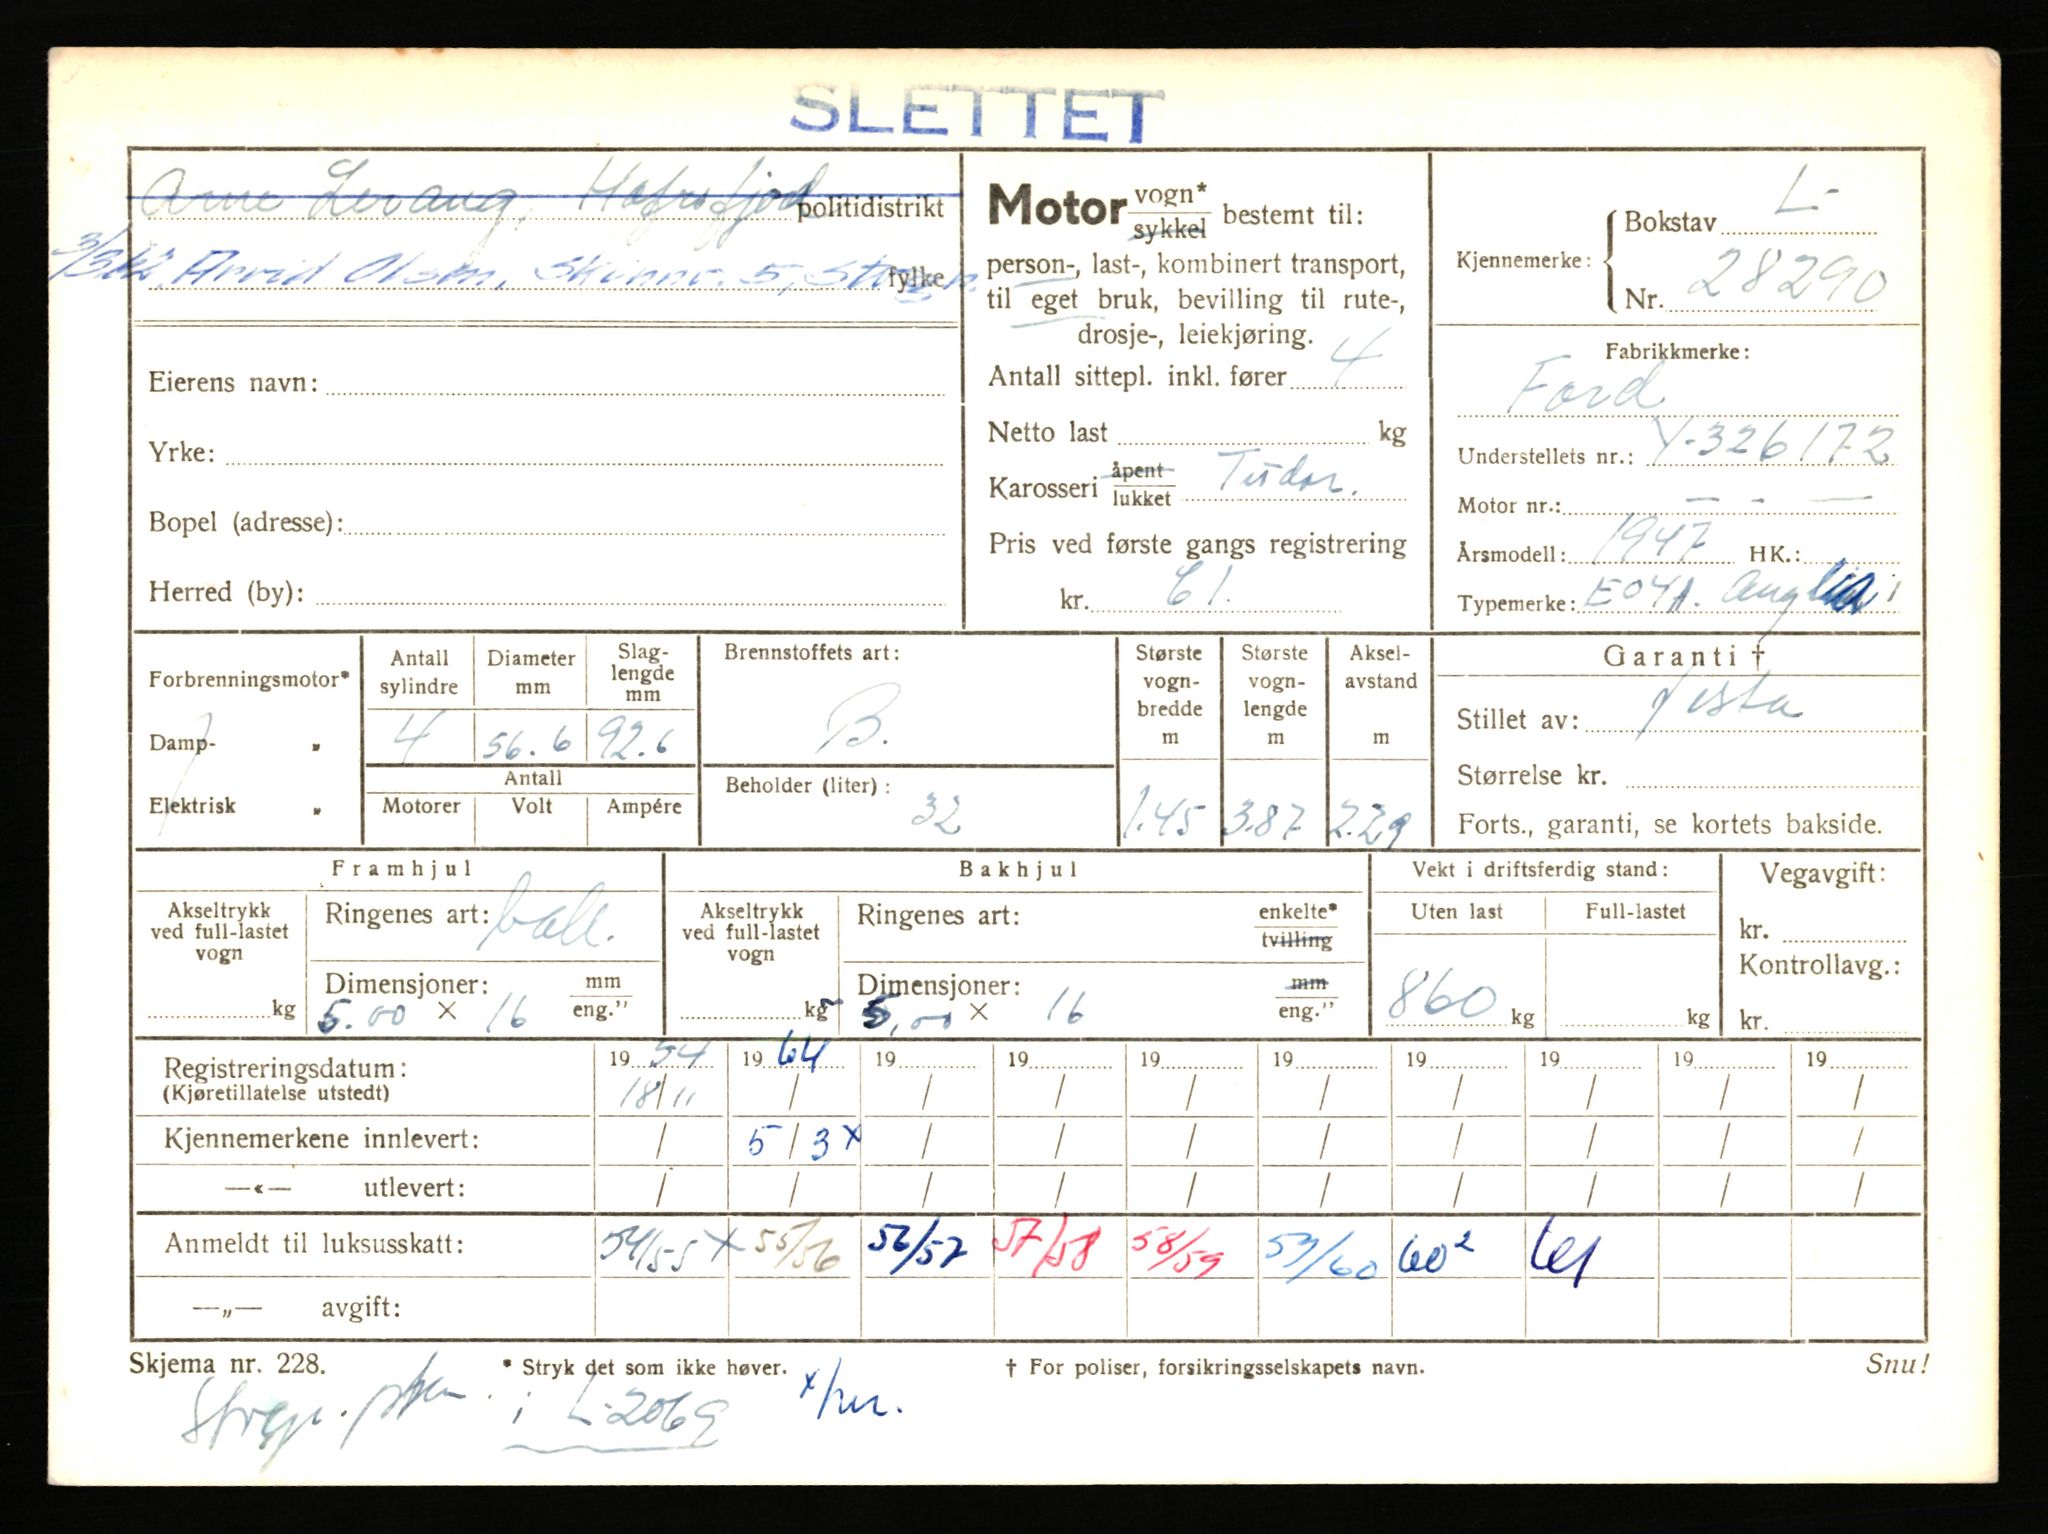 SLETTET
Arne Levang, Hafrsfjord politidistrikt
Arvid Olsen, Skinnr. 5, fylke
Eierens navn:
Yrke:
Bopel (adresse):
Herred (by):
Motor vogn* sykkel bestemt til:
person-, last-, kombinert transport,
til eget bruk, bevilling til rute-,
drosje-, leiekjøring.
Antall sittepl. inkl. fører 4
Netto last kg
Karosseri åpent lukket Tudor.
Pris ved første gangs registrering
kr. 61.
Kjennemerke: Bokstav L-
Nr. 28290
Fabrikkmerke:
Ford
Understellets nr.: Y-326172
Motor nr.: - - -
Årsmodell: 1947 HK.:
Typemerke: E04A. Anglia
Forbrenningsmotor*
Damp- „
Elektrisk „
Antall sylindre
4
Diameter mm
56.6
Slag-lengde mm
92.6
Antall
Motorer Volt Ampére
Brennstoffets art:
B.
Beholder (liter):
32
Største vogn-bredde m
1.45
Største vogn-lengde m
3.87
Aksel-avstand m
2.29
Garanti †
Stillet av: Vesta
Størrelse kr.
Forts., garanti, se kortets bakside.
Framhjul
Akseltrykk ved full-lastet vogn
kg
Ringenes art: ball.
Dimensjoner: mm
5.00 × 16 eng."
Bakhjul
Akseltrykk ved full-lastet vogn
kg
Ringenes art: enkelte* tvilling
Dimensjoner: mm
5,00 × 16 eng."
Vekt i driftsferdig stand:
Uten last Full-lastet
860 kg kg
Vegavgift:
kr.
Kontrollavg.:
kr.
Registreringsdatum: 19 54 19 64 19 19 19 19 19 19 19 19
(Kjøretillatelse utstedt) 18/11 / / / / / / / / /
Kjennemerkene innlevert: / 5/3 x / / / / / / / /
—«— utlevert: / / / / / / / / / /
Anmeldt til luksusskatt: 54/55 x 55/56 56/57 57/58 58/59 59/60 60² 61
—„— avgift:
Skjema nr. 228. * Stryk det som ikke høver. † For poliser, forsikringsselskapets navn. Snu!
i L-2069